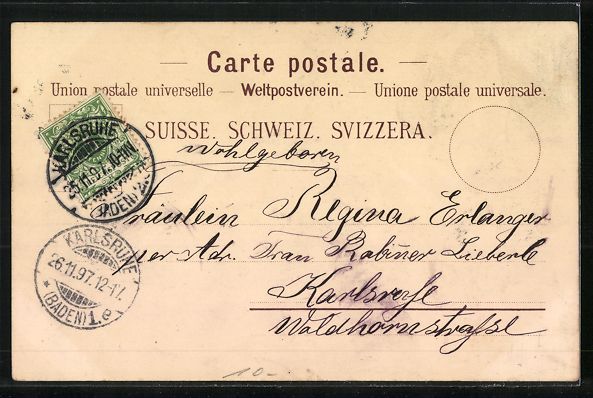 Carte postale.
Union postale universelle — Weltpostverein. — Unione postale universale.
SUISSE. SCHWEIZ. SVIZZERA.
Wohlgeboren
Fräulein Regina Erlanger
per Adr. Frau Rabiner Lieberle
Karlsruhe
Waldhornstraße
KARLSRUHE
25.11.97.
(BADEN)
KARLSRUHE
26.11.97.12-1N.
* (BADEN) 1.e
10-